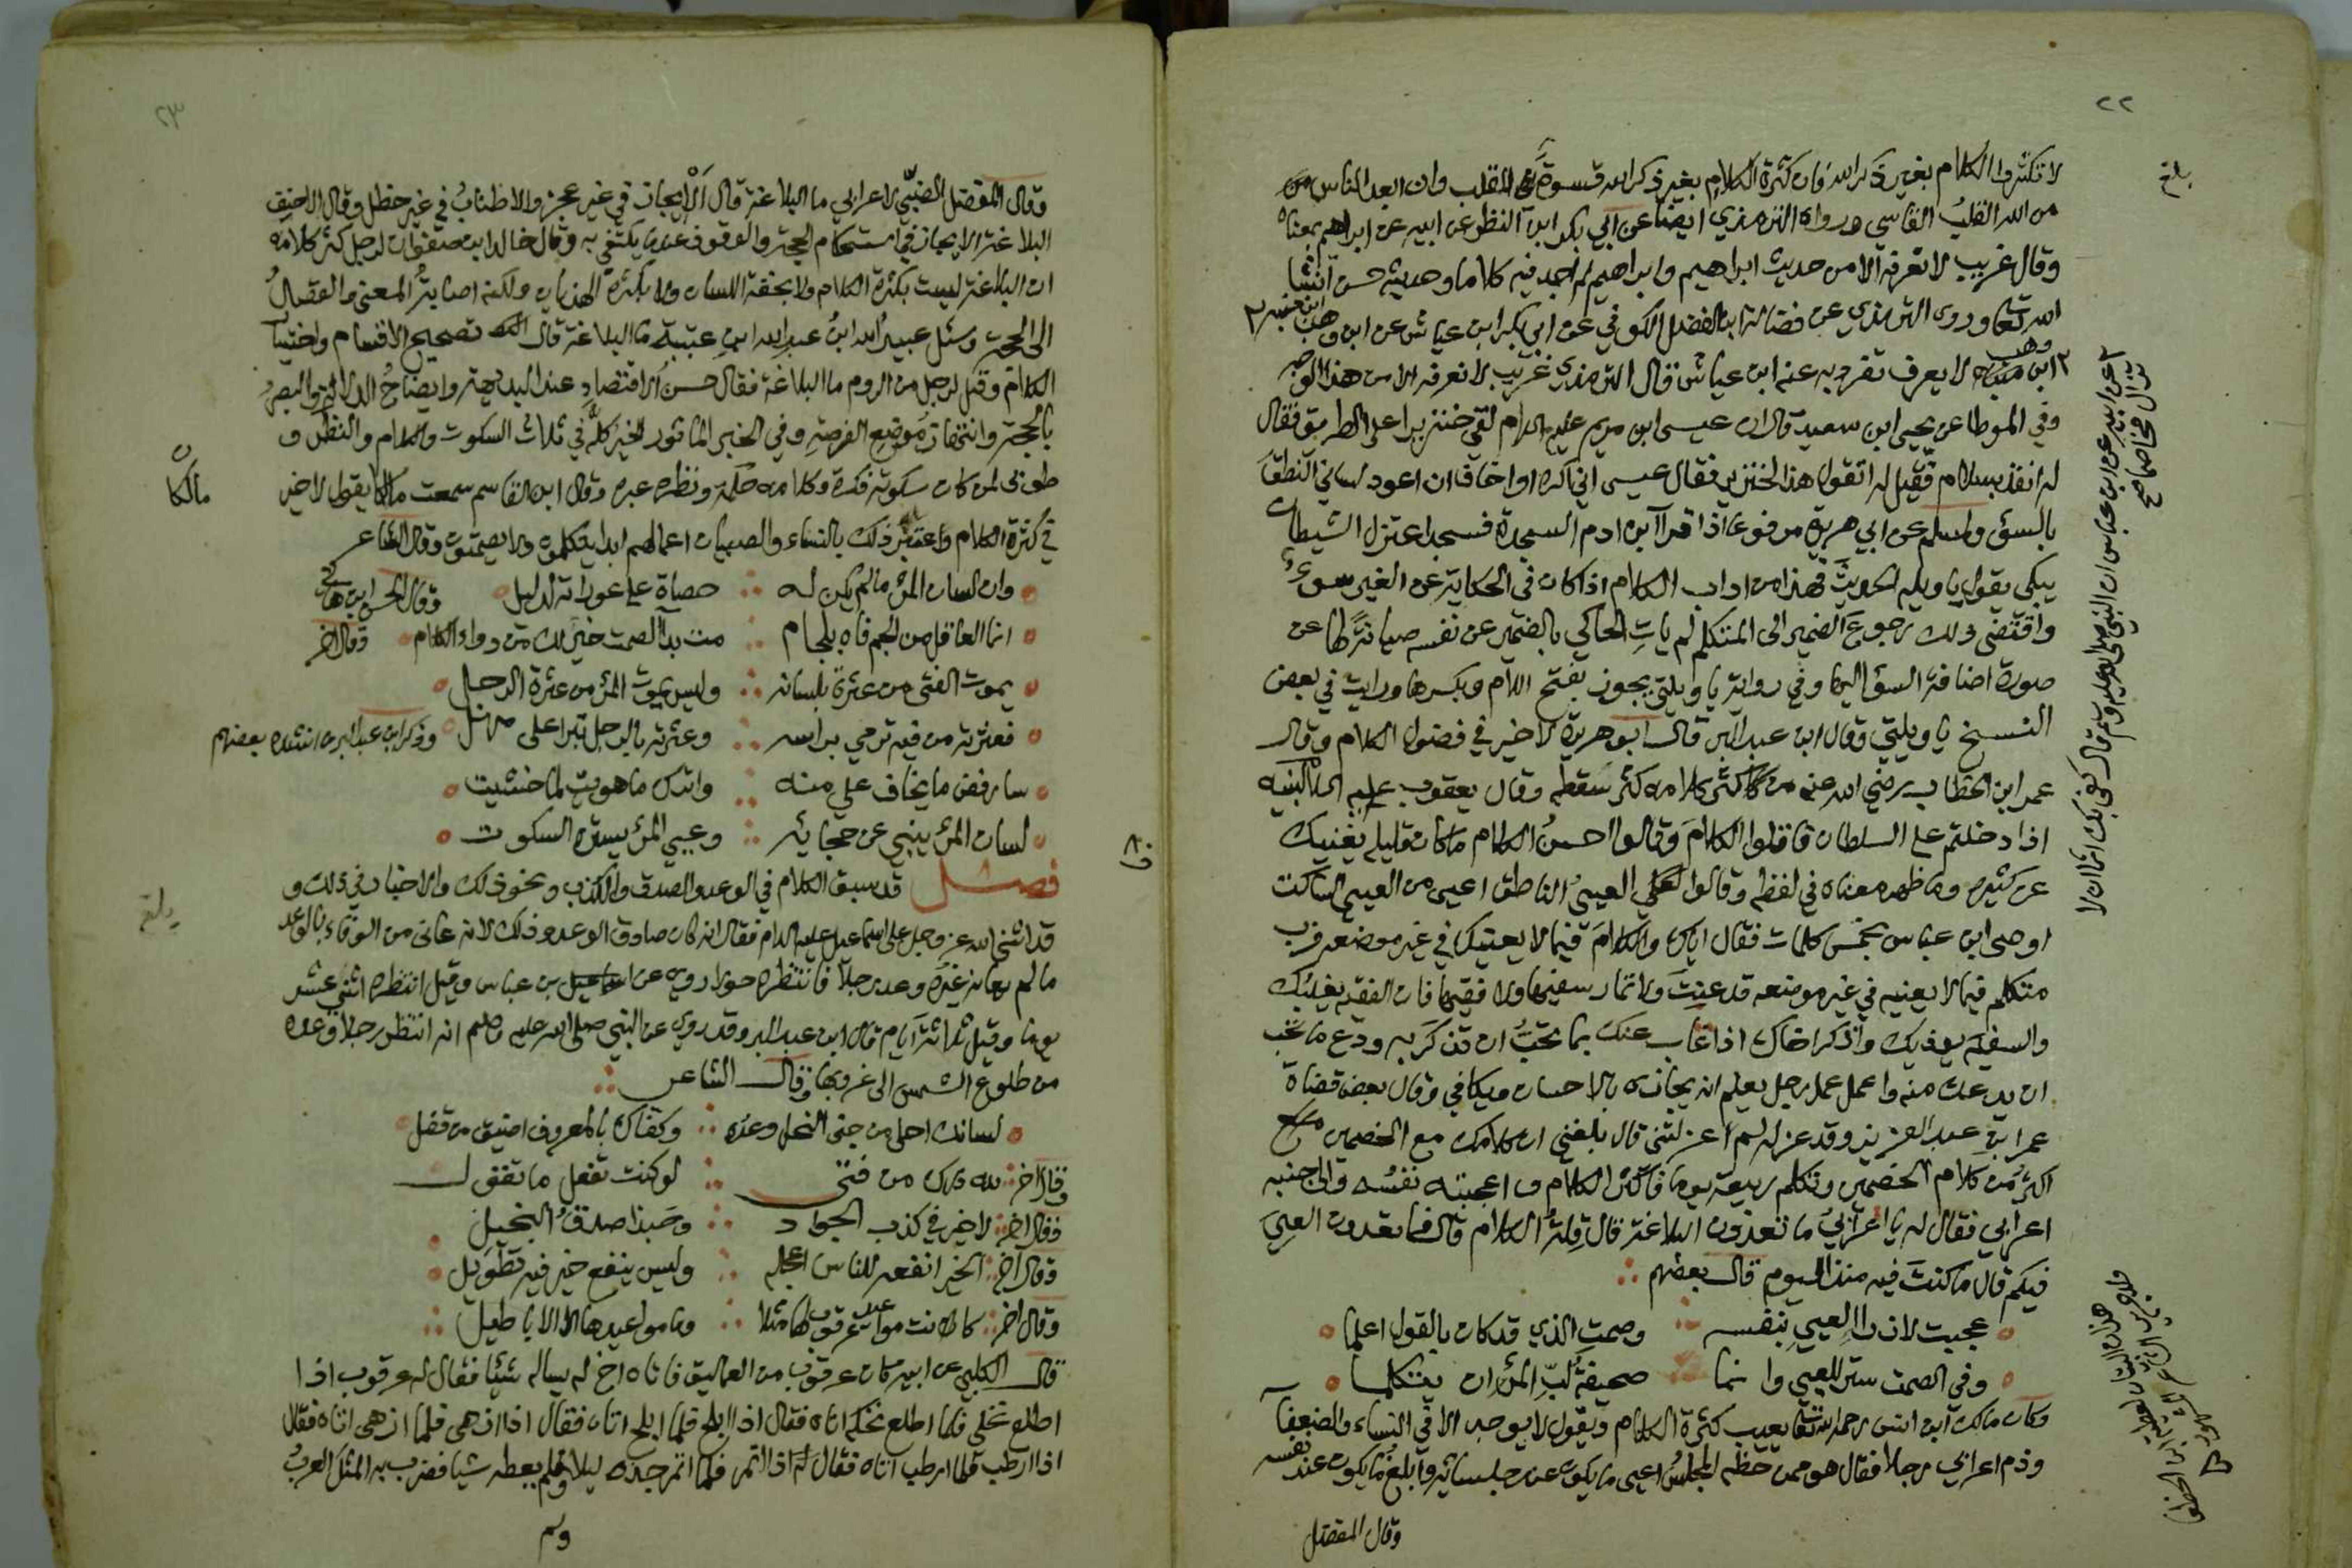 ٢٢
بلغ
لا تكثروا الكلام بغير ذكر الله فان كثرة الكلام بغير ذكر الله قسوة للقلب وان ابعد الناس من
من الله القلب القاسي ورواه الترمذي ايضا عن ابي بكر ابن النظر عن ابيه عن ابراهيم بمعناه
وقال غريب لا نعرفه الا من حديث ابراهيم وابراهيم لم اجد فيه كلاما وحديثه حسن انشا
الله تعا وروى الترمذي عن فضالة ابن الفضل الكوفي عن ابي بكر ابن عياش عن ابن وهب ابن منبه
ابن منبه لا يعرف تفرد به عنه ابن عياش قال الترمذي غريب لا نعرفه الا من هذا الوجه
وفي الموطا عن يحيى ابن سعيد قال ان عيسى ابن مريم عليه السلام لقي خنزيرا على الطريق فقال
له انفذ بسلام فقيل له اتقول هذا لخنزير فقال عيسى اني اكره او اخاف ان اعود لساني النطق
بالسؤ ولمسلم عن ابي هريرة مرفوعا اذا قرا ابن ادم السجدة فسجد اعتزل الشيطان
يبكي يقول يا ويله الحديث فهذا من اداب الكلام اذا كان في الحكاية عن الغير سوء
واقتضى ذلك رجوع الضمير الى المتكلم لم يات الحاكي بالضمير عن نفسه صيانة لها عن
صورة اضافة السؤ اليها وفي رواية يا ويلتي يجوز بفتح اللام وبكسرها ورايت في بعض
النسخ يا ويلتي وقال ابن عبد البر قال ابو هريرة لا خير في فضول الكلام وقال
عمر ابن الخطاب رضي الله عنه من كثر كلامه كثر سقطه وقال يعقوب عليه السلام لبنيه
اذا دخلتم على السلطان فاقلوا الكلام وقالوا احسن الكلام ما كان قليله يغنيك
عن كثيره وما ظهر معناه في لفظه وقالوا العيي الناطق اعيى من العيي الساكت
اوصى ابن عباس بخمس كلمات فقال اياك والكلام فيما لا يعنيك في غير موضعه فرب
متكلم فيما لا يعنيه في غير موضعه قد عنت ولا تمار سفيها ولا فقيها فان الفقيه يغلبك
والسفيه يوذيك واذكر اخاك اذا غاب عنك بما تحب ان تذكر به ودع ما تحب
ان يدعك منه واعمل عمل رجل يعلم انه يجازى بالاحسان ويكافى وقال بعض قضاة
عمر ابن عبد العزيز وقد عزله لم اعزلتني قال بلغني ان كلامك مع الخصمين
اكثر من كلام الخصمين وتكلم ربيعة يوما فاكثر الكلام واعجبته نفسه والى جنبه
اعرابي فقال له يا اعرابي ما تعدون البلاغة قال قلة الكلام قال فما تعدون العي
فيكم قال ما كنت فيه منذ اليوم قال بعضهم
عجبت لازراء العيي بنفسه وصمت الذي قد كان بالقول اعلما
وفي الصمت ستر للعيي وانما صحيفة لب المرؤ ان يتكلما
وكان مالك ابن انس رحمه الله تعا يعيب كثرة الكلام ويقول لا يوجد الا في النساء والضعفا
وذم اعرابي رجلا فقال هو ممن حظه المجلس اعيى ما يكون عند جلسائه وابلغ ما يكون عند نفسه
وقال المفضل
٢٣
وقال المفضل الضبي لاعرابي ما البلاغة قال الايجاز في غير عجز والاطناب في غير خطل وقال الاحنف
البلاغة الايجاز في استحكام الحجة والوقوف عند ما يكتفى به وقال خالد ابن صفوان لرجل كثر كلامه
ان البلاغة ليست بكثرة الكلام ولا بخفة اللسان ولا بكثرة الهذيان ولكنه اصابة المعنى والقصد
الى الحجة وسئل عبيد الله ابن عبد الله ابن عتبة ما البلاغة قال تصحيح الاقسام واختيا
الكلام وقيل لرجل من الروم ما البلاغة فقال حسن الاقتصاد عند البديهة وايضاح الدلالة والبصر
بالحجة وانتهاز موضع الفرصة وفي الخبر الماثور الخير كله في ثلاث السكوت والكلام والنظر و
طوبى لمن كان سكوته فكرة وكلامه حكمة ونظره عبره وقال ابن القاسم سمعت مالكا يقول لا خير
مالكا
في كثرة الكلام واعتبر ذلك بالنساء والصبيان اعمالهم ابدا يتكلمون ولا يصمتون وقال الشاعر
وان لسان المرؤ ما لم يكن له حصاة على عوراته لدليل وقال الحسن ابن هاني
انما العاقل من الجم فاه بلجام مت بداء الصمت خير لك من داء الكلام وقال اخر
يموت الفتى من عثرة بلسانه وليس يموت المرؤ من عثرة الرجل
فعثرته من فيه ترمي براسه وعثرته بالرجل تبرا على مهل وذكر ابن عبد البر انشده بعضهم
سارفض ما يخاف علي منه واترك ما هويت لما خشيت
لسان المرؤ ينبي عن حجائه وعيي المرؤ يستره السكوت
فصل قد سبق الكلام في الوعد والصدق والكذب ونحو ذلك والاخبار في ذلك و
بلغ
قد اثنى الله عز وجل على اسماعيل عليه السلام فقال انه كان صادق الوعد وذلك لانه عانى من الوفاء بالوعد
ما لم يعانه غيره وعد رجلا فانتظره حولا روي عن ابن عباس وقيل انتظره اثني عشر
يوما وقيل ثلاثة ايام قال ابن عبد البر وقد روي عن النبي صلى الله عليه وسلم انه انتظر رجلا وعده
من طلوع الشمس الى غروبها وقال الشاعر
لسانك احلى من جنى النحل وعده وكفاك بالمعروف اضيق من قفل
وقال اخر لله درك من فتى لو كنت تفعل ما تقول
وقال اخر لا خير في كذب الجواد وحبذا صدق البخيل
وقال اخر الخير انفعه للناس اعجله وليس ينفع خير فيه تطويل
وقال اخر كانت مواعيد عرقوب لها مثلا وما مواعيدها الا الاباطيل
قال الكلبي عن ابيه كان عرقوب من العماليق فاتاه اخ له يساله شيئا فقال له عرقوب اذا
اطلع نخلي فلما اطلع نخله اتاه فقال اذا ابلح فلما ابلح اتاه فقال اذا ازهى فلما ازهى اتاه فقال
اذا ارطب فلما ارطب اتاه فقال له اذا اتمر فلما اتمر جذه ليلا ولم يعطه شيا فضرب به المثل العرب